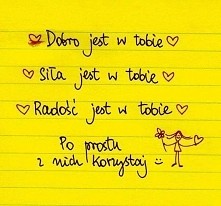 Dobro jest w tobie
Siła jest w tobie
Radość jest w tobie
Po prostu
z nich korzystaj :)